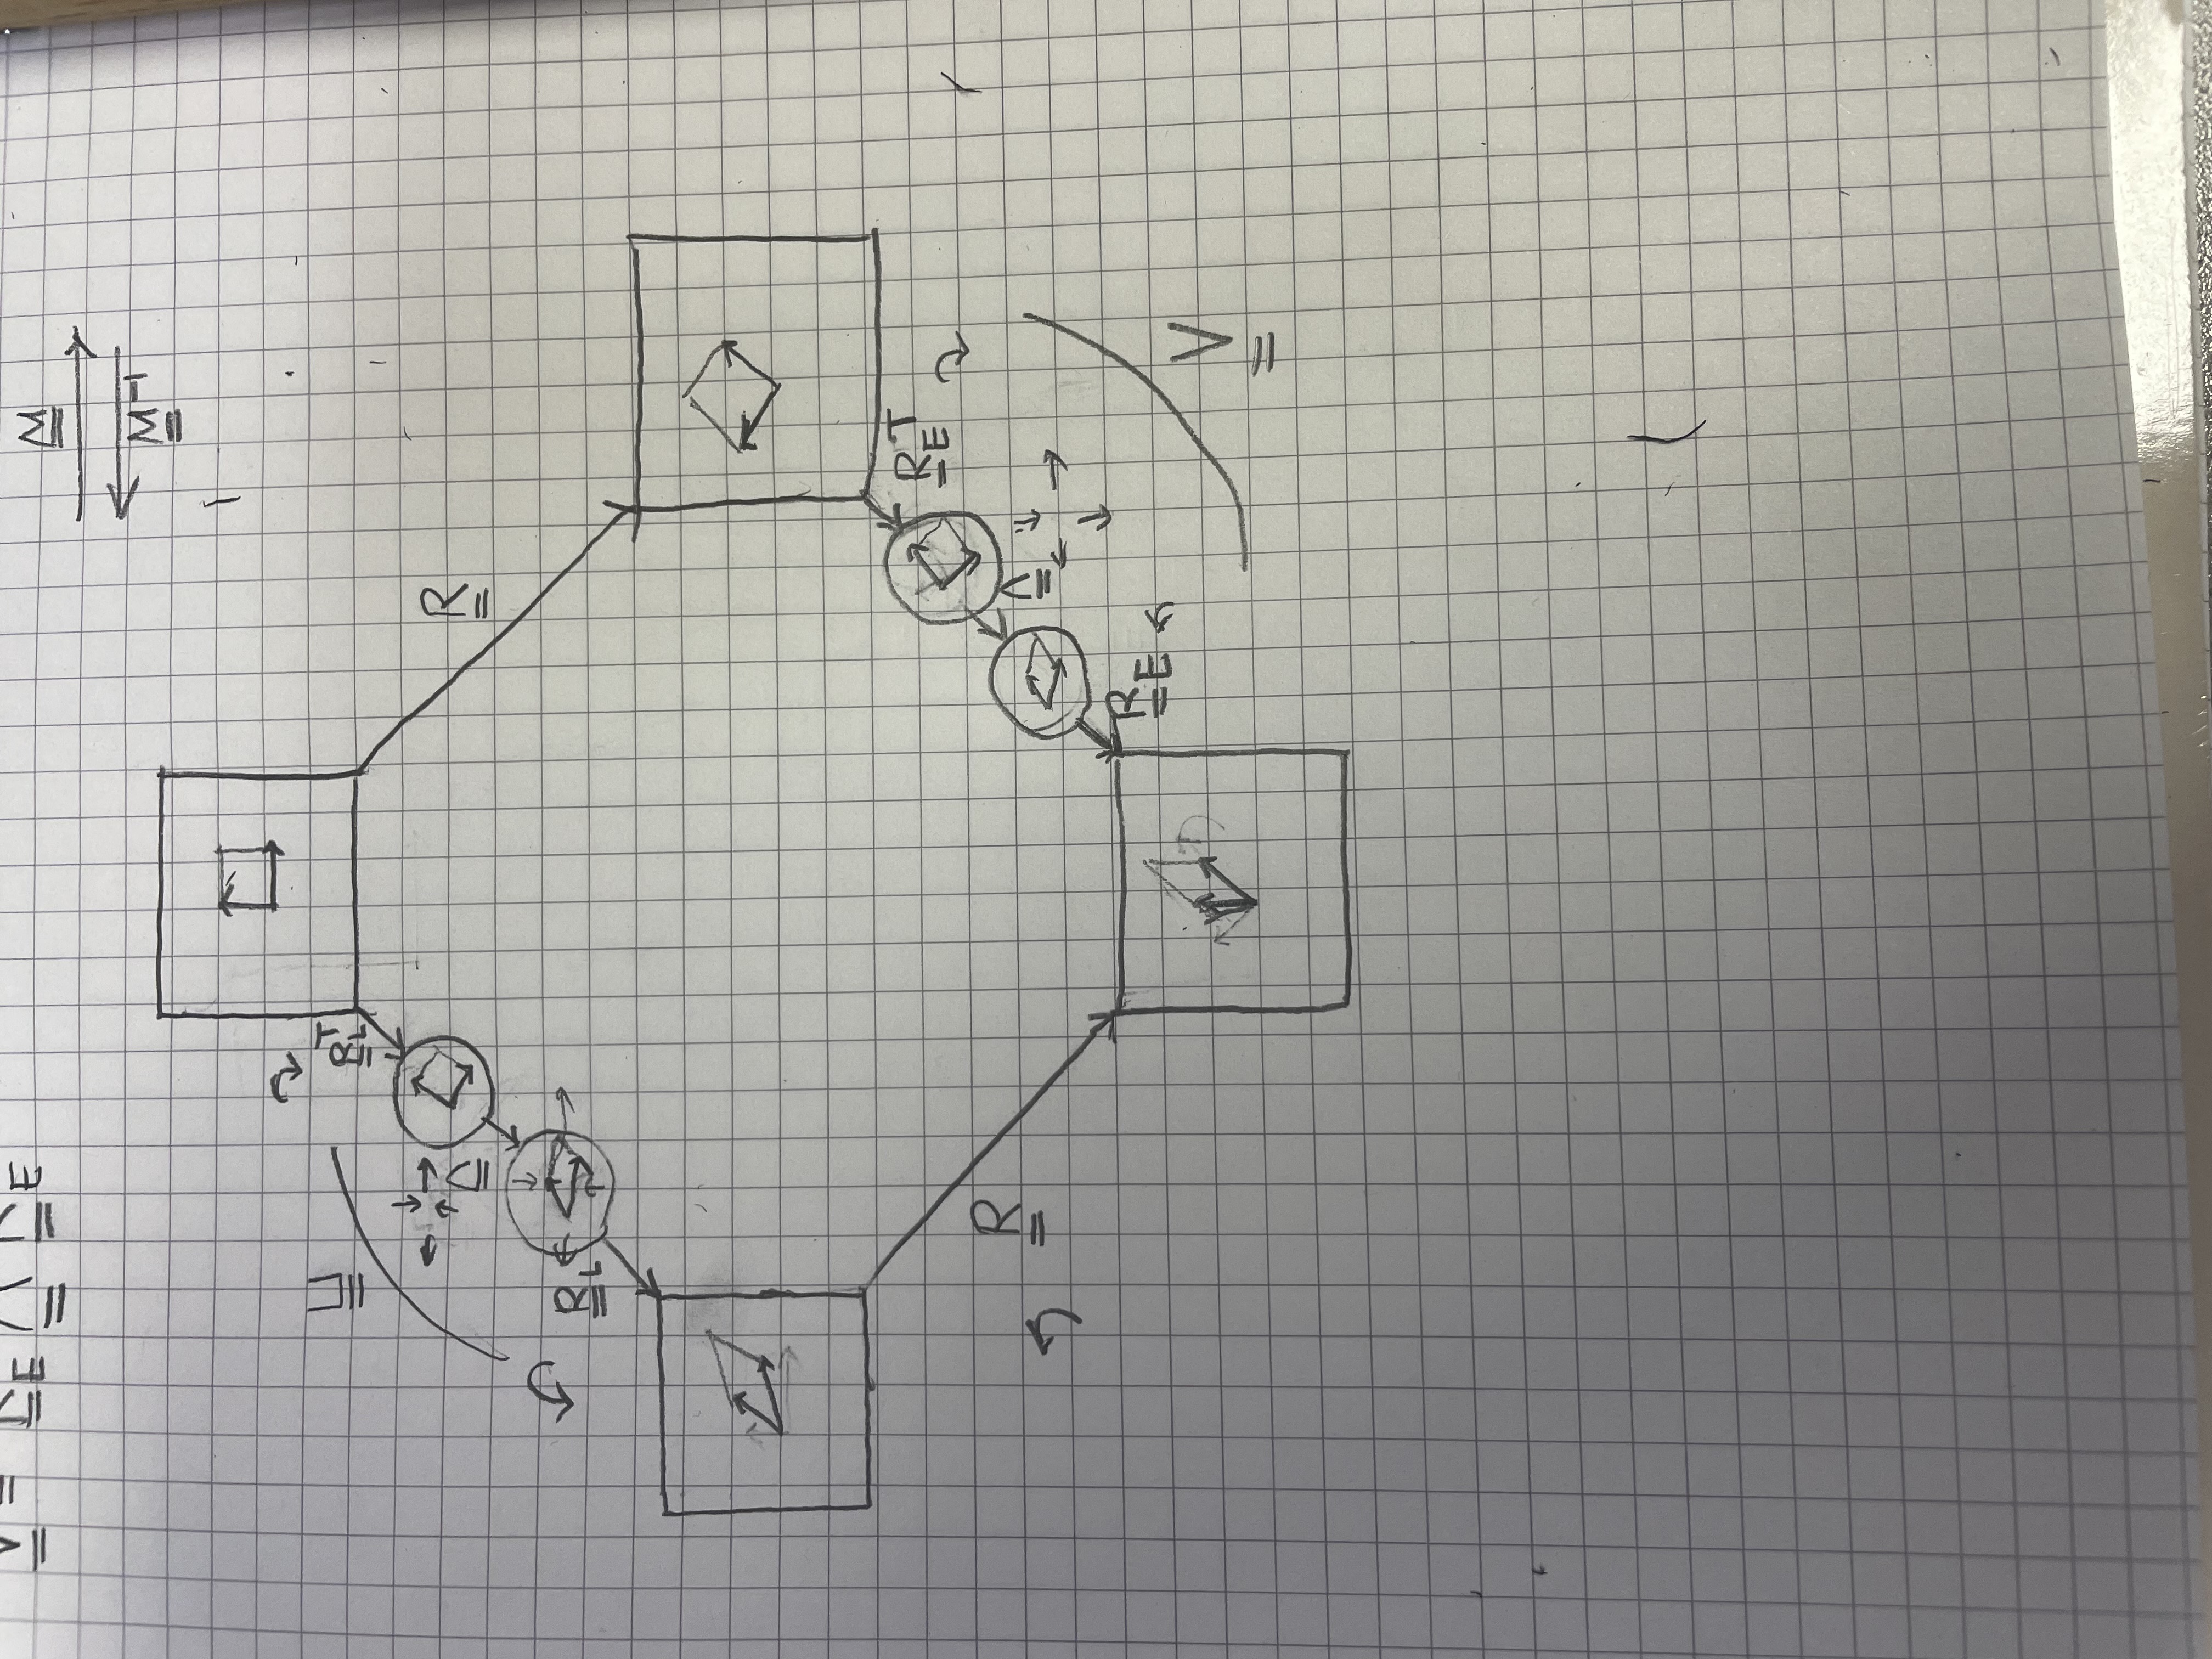 V = R_E Λ R_E
M
M⁻¹
U
R_L^T
R
Λ
R_L
R_E^T
R
Λ
R_E
V